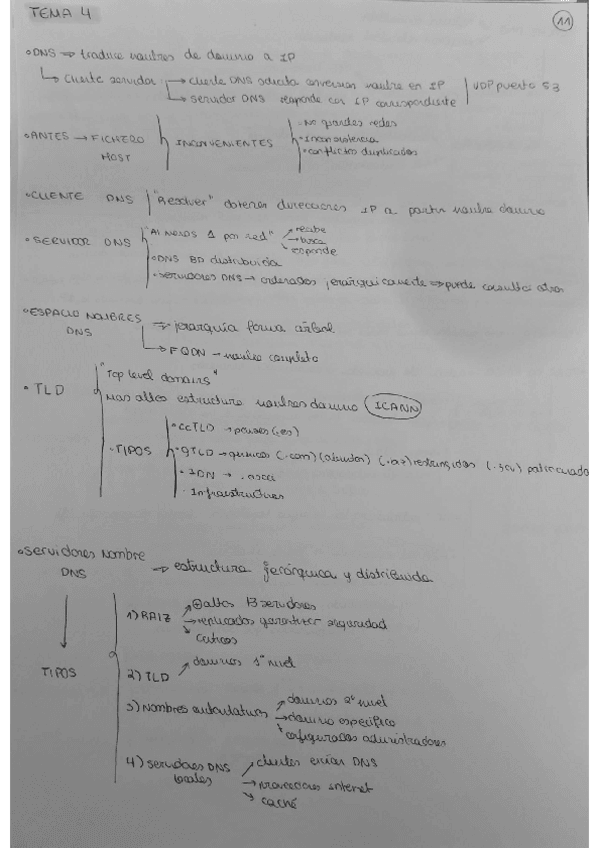 TEMA 4
11
• DNS ⇒ traduce nombres de dominio a IP
↳ cliente servidor → cliente DNS solicita conversion nombre en IP | UDP puerto 53
↳ servidor DNS responde con IP correspondiente
• ANTES → FICHERO HOST
INCONVENIENTES
• No grandes redes
• Inconsistencia
• conflictos duplicados
• CLIENTE DNS | "Resolver" obtener direcciones IP a partir nombre dominio
• SERVIDOR DNS
"Al menos 1 por red" → recibe → busca → responde
• DNS BD distribuida
• servidores DNS → ordenados jerárquicamente ⇒ puede consultar otros
• ESPACIO NOMBRES DNS
→ jerarquía forma árbol
→ FQDN → nombre completo
• TLD
"Top level domains"
Mas altos estructura nombres dominio (ICANN)
• TIPOS
• ccTLD → paises (es)
• gTLD → genericos (.com) restringidos patrocinado
• IDN →
• Infraestructura
• Servidores Nombre DNS → estructura jerárquica y distribuida
TIPOS
1) RAIZ
⊕ altos 13 servidores
→ replicados garantizar seguridad
→ criticos
2) TLD → dominios 1er nivel
3) Nombres autoritativos
dominios 2º nivel
→ dominio especifico
configurados administradores
4) servidores DNS locales
clientes envian DNS
→ proveedores internet
→ caché